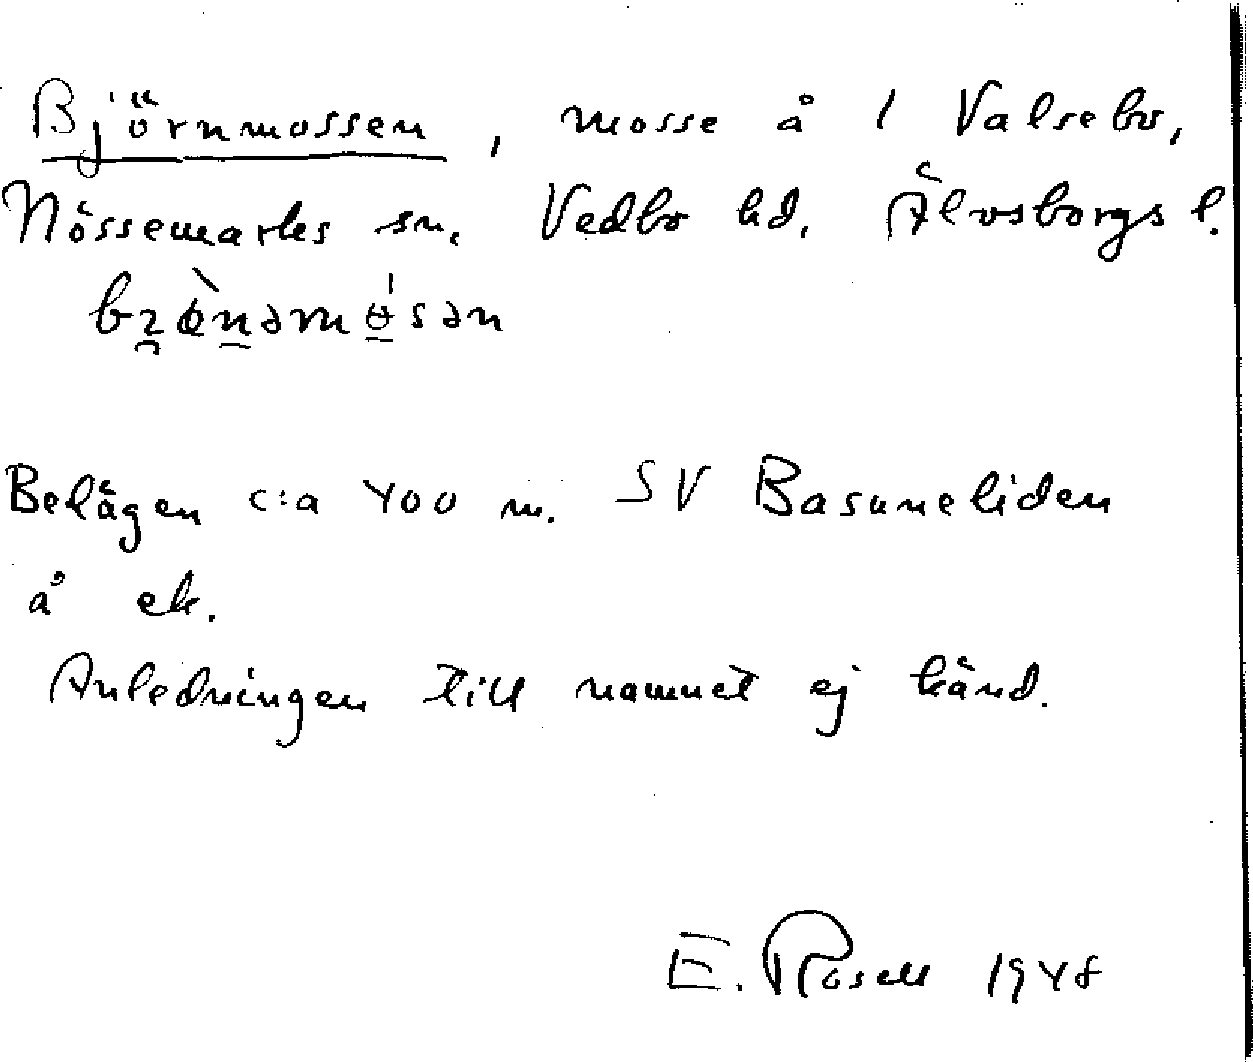 Björnmossen, mosse å 1 Valsebo,
Nössemarks sn. Vedbo hd, Älvsborgs l.
Belägen c:a 400 m. SV Basuneliden
å ek.
Anledningen till namnet ej känd.
E. Rosell 1948